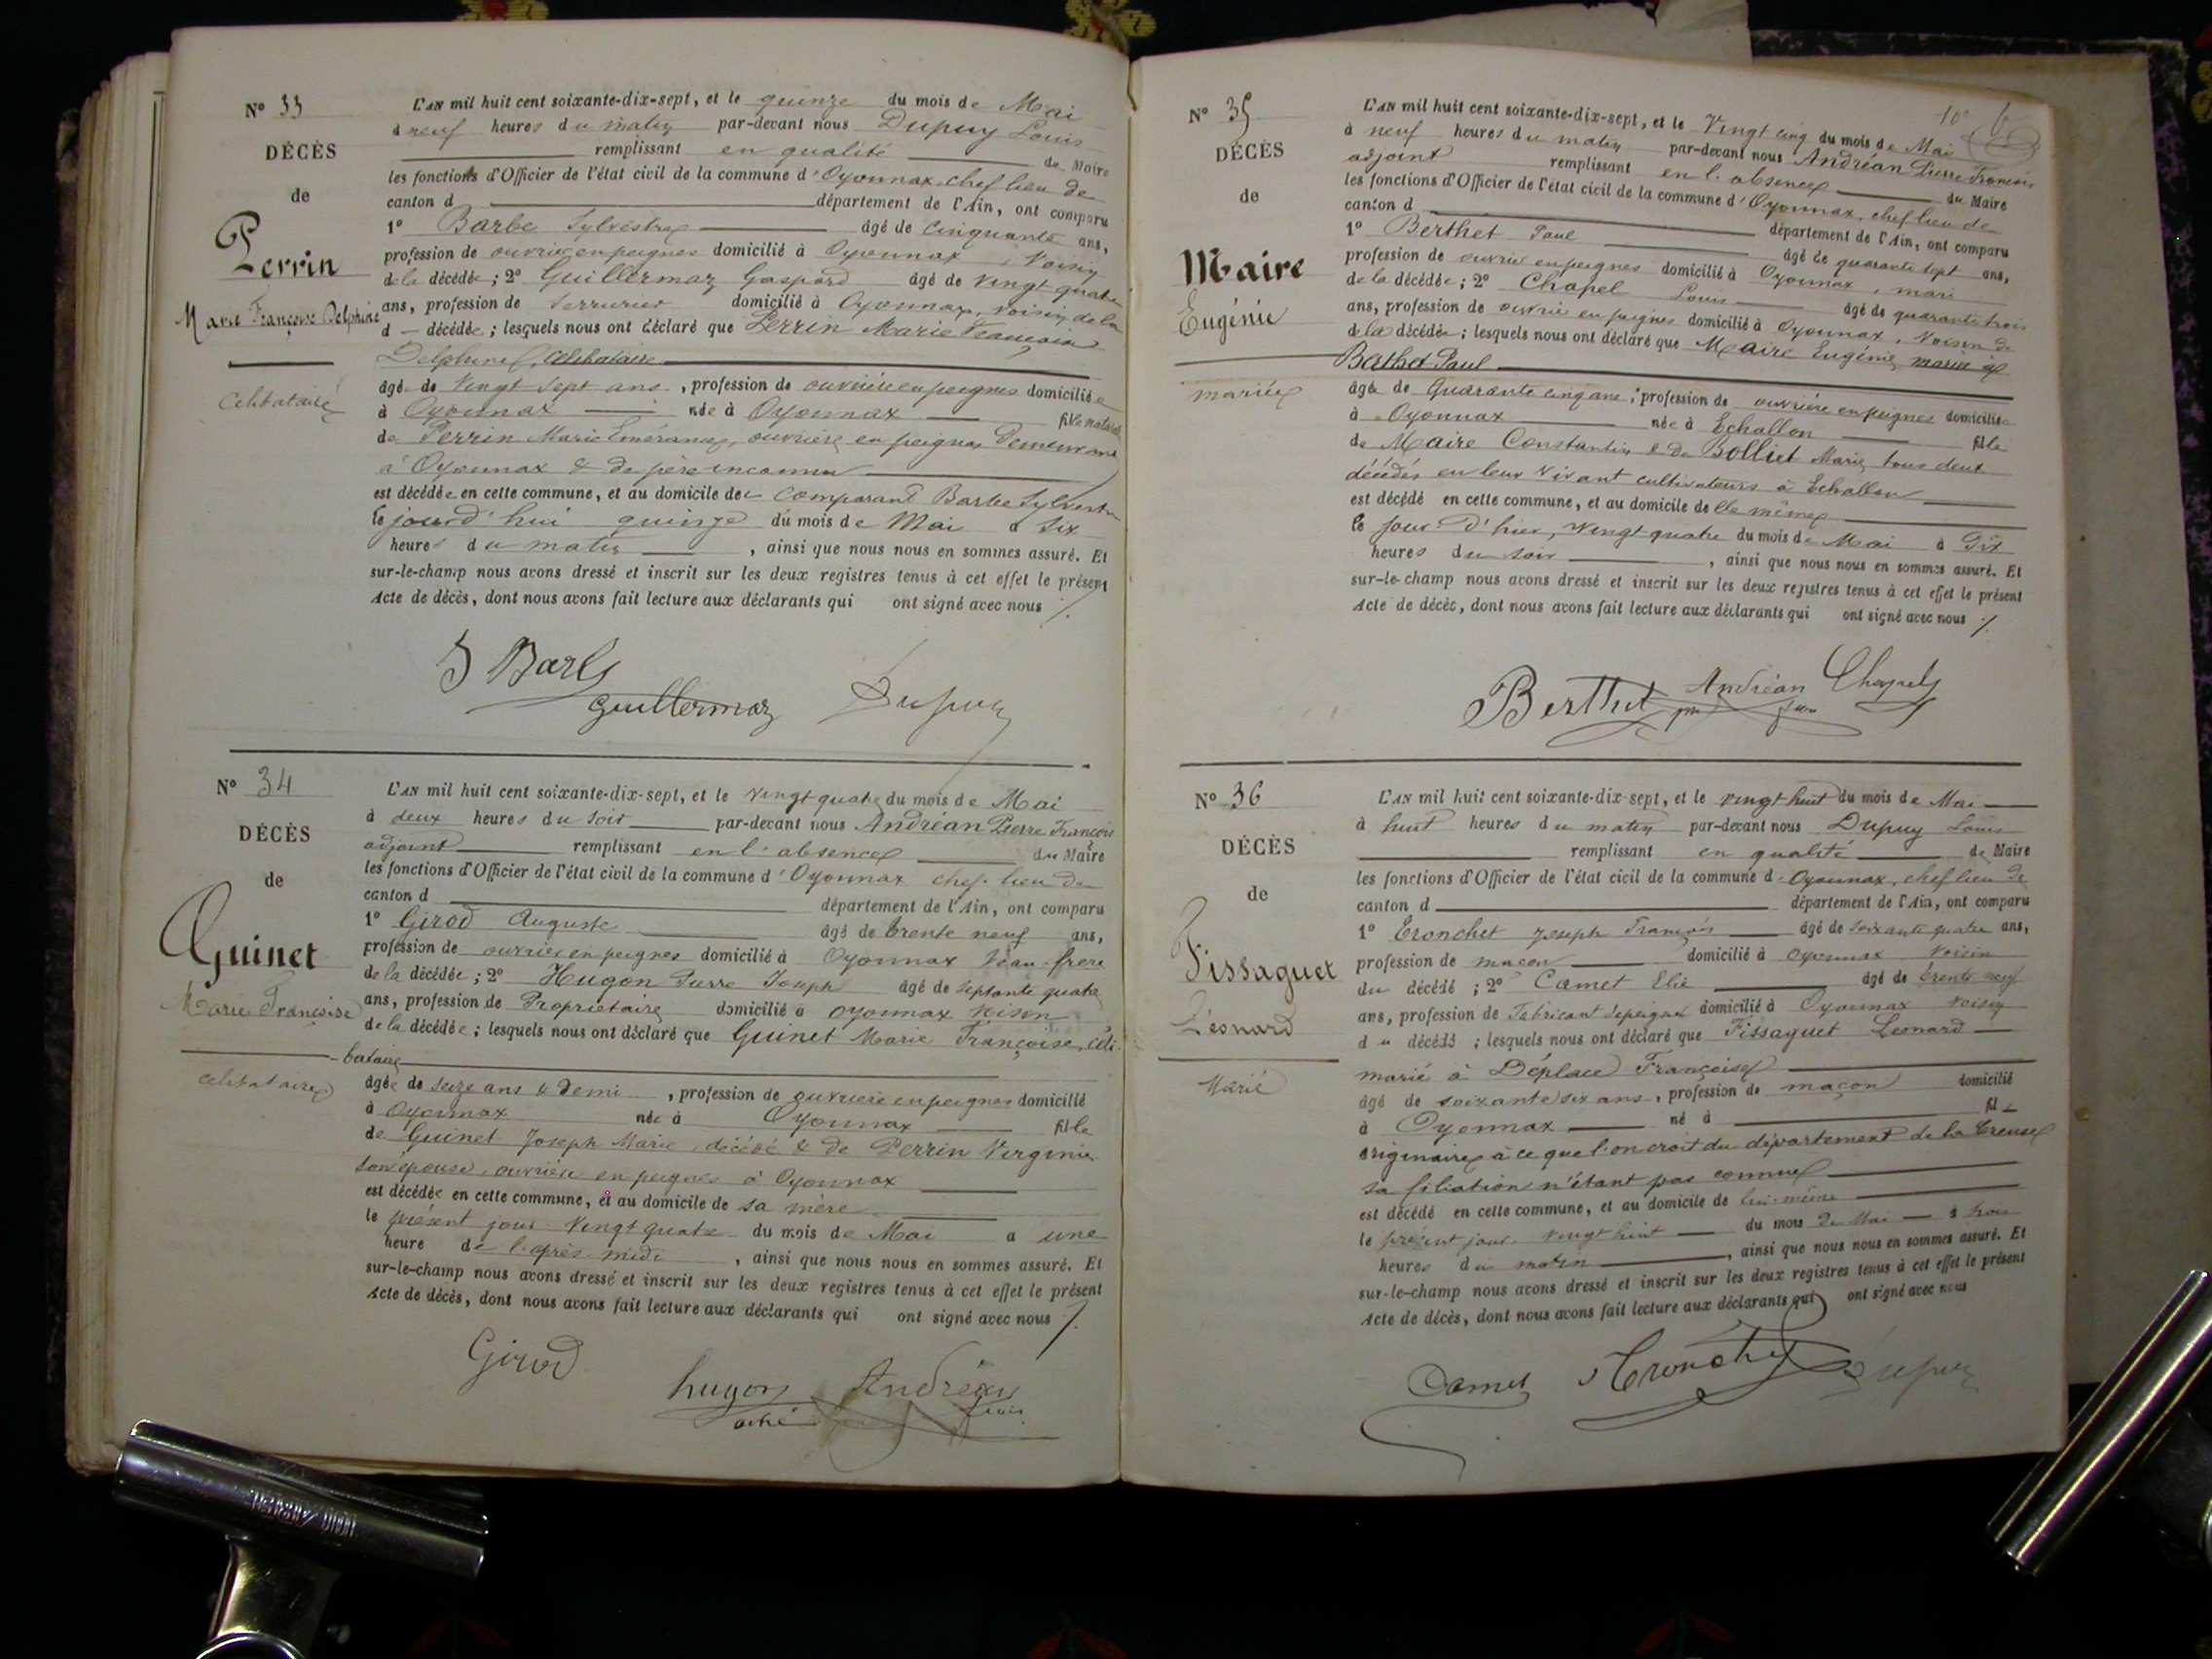 N° 33
DÉCÈS
de
Perrin
Marie Françoise Delphine
Célibataire
L'AN mil huit cent soixante-dix-sept, et le quinze du mois de Mai
à neuf heures du matin par-devant nous Dupuy Louis
remplissant en qualité de Maire
les fonctions d'Officier de l'état civil de la commune d'Oyonnax, chef lieu de
canton d département de l'Ain, ont comparu
1° Barbe Sylvestre âgé de cinquante ans,
profession de ouvrier en peignes domicilié à Oyonnax, Voisin
de la décédée ; 2° Guillermaz Gaspard âgé de vingt quatre
ans, profession de Serrurier domicilié à Oyonnax, Voisin de la
d décédée ; lesquels nous ont déclaré que Perrin Marie Françoise
Delphine, Célibataire
âgée de Vingt Sept ans, profession de ouvrière en peignes domiciliée
à Oyonnax née à Oyonnax fille naturelle
de Perrin Marie Emérance, ouvrière en peignes demeurant
à Oyonnax & de père inconnu
est décédée en cette commune, et au domicile de comparant Barbe Sylvestre
le jourd'hui quinze du mois de Mai à Six
heures du matin, ainsi que nous nous en sommes assuré. Et
sur-le-champ nous avons dressé et inscrit sur les deux registres tenus à cet effet le présent
Acte de décès, dont nous avons fait lecture aux déclarants qui ont signé avec nous
S Barbe
Guillermaz Dupuy
N° 34
DÉCÈS
de
Guinet
Marie Françoise
célibataire
L'AN mil huit cent soixante-dix-sept, et le vingt quatre du mois de Mai
à deux heures du soir par-devant nous Andréan Pierre François
adjoint remplissant en l'absence du Maire
les fonctions d'Officier de l'état civil de la commune d'Oyonnax chef lieu de
canton d département de l'Ain, ont comparu
1° Girod Auguste âgé de trente neuf ans,
profession de ouvrier en peignes domicilié à Oyonnax beau-frère
de la décédée ; 2° Hugon Pierre Joseph âgé de septante quatre
ans, profession de Propriétaire domicilié à Oyonnax voisin
de la décédée ; lesquels nous ont déclaré que Guinet Marie Françoise, céli
bataire
âgée de seize ans & demi, profession de ouvrière en peignes domicilié
à Oyonnax née à Oyonnax fille
de Guinet Joseph Marie, décédé & de Perrin Virginie
son épouse, ouvrière en peignes à Oyonnax
est décédée en cette commune, et au domicile de sa mère
le présent jour vingt quatre du mois de Mai à une
heure de l'après midi, ainsi que nous nous en sommes assuré. Et
sur-le-champ nous avons dressé et inscrit sur les deux registres tenus à cet effet le présent
Acte de décès, dont nous avons fait lecture aux déclarants qui ont signé avec nous
Girod
hugon Andréan
N° 35
DÉCÈS
de
Maire
Eugénie
mariée
L'AN mil huit cent soixante-dix-sept, et le Vingt cinq du mois de Mai
à neuf heures du matin par-devant nous Andréan Pierre François
adjoint remplissant en l'absence du Maire
les fonctions d'Officier de l'état civil de la commune d'Oyonnax, chef lieu de
canton d département de l'Ain, ont comparu
1° Berthet Paul âgé de quarante sept ans,
profession de ouvrier en peignes domicilié à Oyonnax, mari
de la décédée ; 2° Chapel Louis âgé de quarante trois
ans, profession de ouvrier en peignes domicilié à Oyonnax, Voisin de
d la décédée ; lesquels nous ont déclaré que Maire Eugénie, mariée à
Berthet Paul
âgée de Quarante cinq ans, profession de ouvrière en peignes domiciliée
à Oyonnax née à Echallon fille
de Maire Constantin & de Bolliet Marie, tous deux
décédés en leur vivant cultivateurs à Echallon
est décédé en cette commune, et au domicile de elle même
le jour d'hier, vingt quatre du mois de Mai à Dix
heures du soir, ainsi que nous nous en sommes assuré. Et
sur-le-champ nous avons dressé et inscrit sur les deux registres tenus à cet effet le présent
Acte de décès, dont nous avons fait lecture aux déclarants qui ont signé avec nous
Berthet Andréan Chapel
N° 36
DÉCÈS
de
Fissaguet
Léonard
Marié
L'AN mil huit cent soixante-dix-sept, et le vingt huit du mois de Mai
à huit heures du matin par-devant nous Dupuy Louis
remplissant en qualité de Maire
les fonctions d'Officier de l'état civil de la commune d'Oyonnax, chef lieu de
canton d département de l'Ain, ont comparu
1° Tronchet Joseph François âgé de soixante quatre ans,
profession de maçon domicilié à Oyonnax voisin
du décédé ; 2° Camet Elie âgé de trente neuf
ans, profession de Fabricant de peignes domicilié à Oyonnax voisin
du décédé ; lesquels nous ont déclaré que Fissaguet Léonard
marié à Déplace Françoise
âgé de soixante six ans, profession de maçon domicilié
à Oyonnax né à fils
originaire à ce que l'on croit du département de la Creuse
sa filiation n'étant pas connue
est décédé en cette commune, et au domicile de lui-même
le présent jour vingt huit du mois de Mai à trois
heures du matin, ainsi que nous nous en sommes assuré. Et
sur-le-champ nous avons dressé et inscrit sur les deux registres tenus à cet effet le présent
Acte de décès, dont nous avons fait lecture aux déclarants qui ont signé avec nous
Camet Tronchet Dupuy